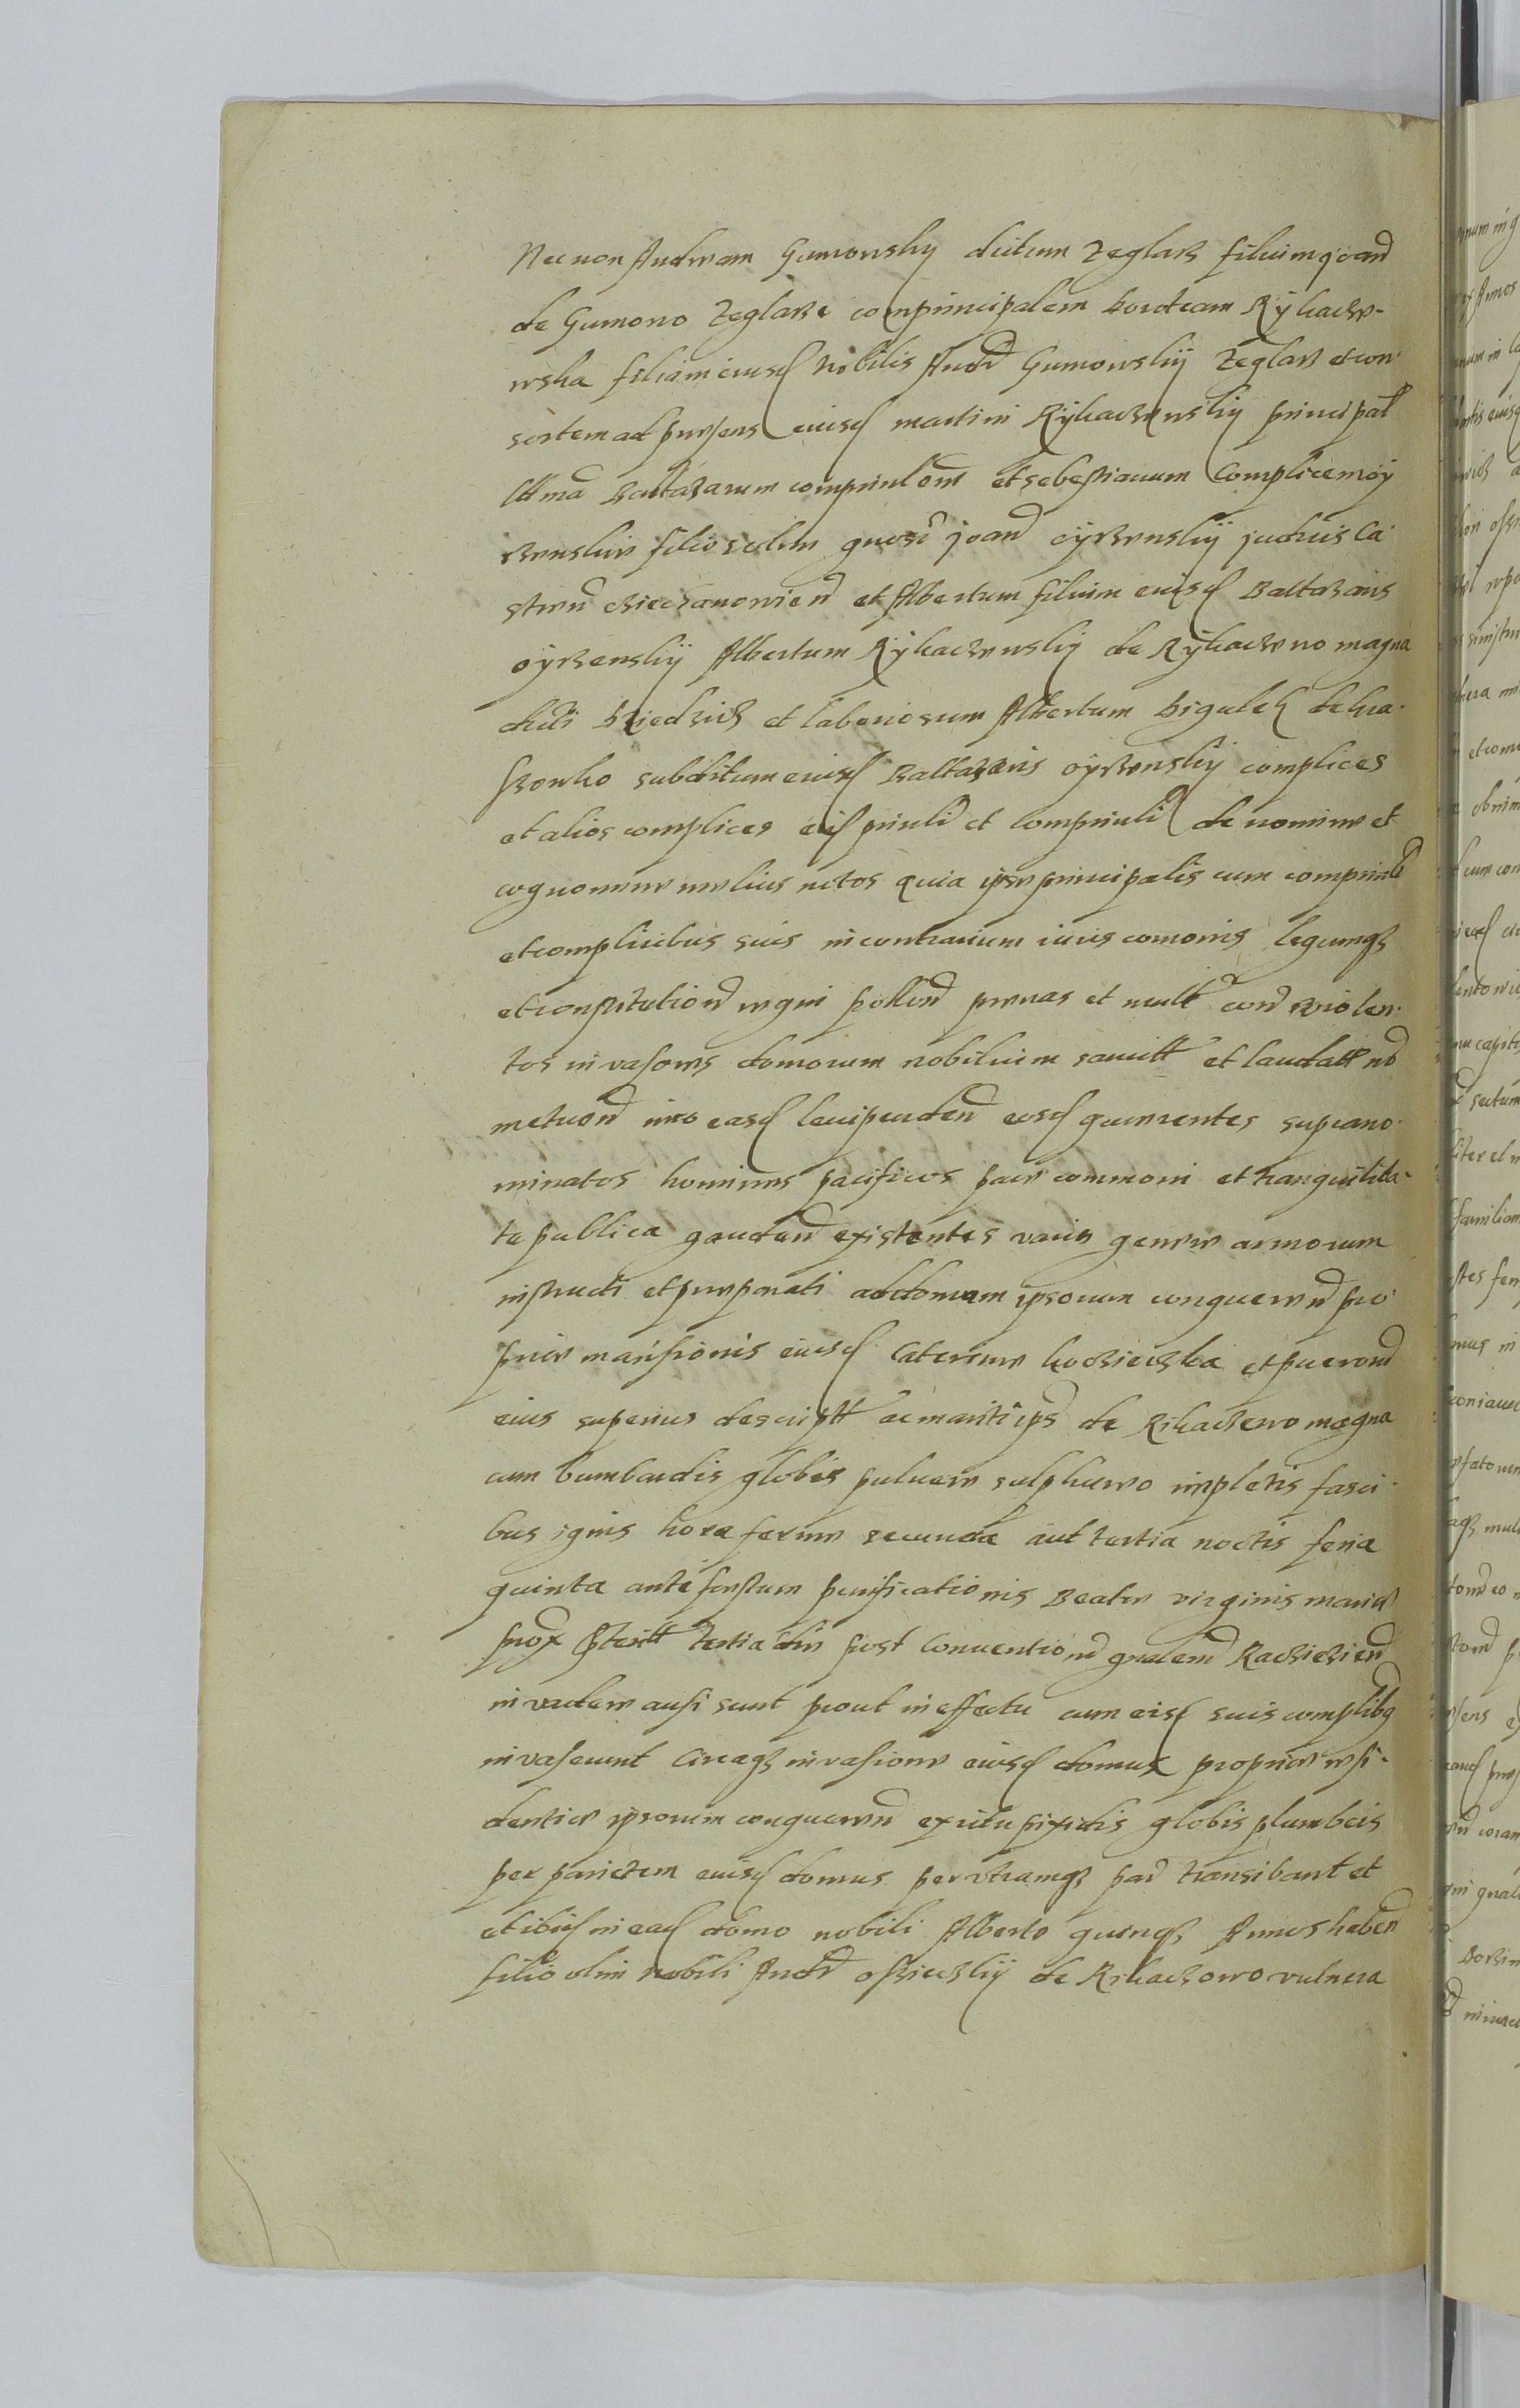 Necnon Andream Gumowsky dictum Zeglarz filium Joand
de Gumowo Zeglarze comprincipalem Doroteam Rykacze-
wska filiam eiusd nobilis And Gumowskij Zeglarz et con
sortem ad praesens eiusd martini Rykaczewskij principal
Baltazarum et Sebestianum Complicem oy
rzenskie filios olim gnosi Joand oyrzenskij judicis Ca
stren Ciechanowien et Albertum filium eiusd Baltazaris
oyrzenskij Albertum Rykaczewskij de Rykaczewo magna
dicti et laboriosum Albertum de kra
subditum eiusd Baltazaris oyrzenskij complices
et alios complices eiusd princli et comprincli de nomine et
cognomine melius notos quia ipse principalis cum comprincl
et complicibus suis in contrarium iuris comonis legumqz
et constitutiond regni poenas et mult cond violen
tos invasores domorum nobilium sancitt et laudatt nd
metuend imo easd levipendend eosd quaerentes suprano
minatos homines pacificos pace commoni et tranquilita-
te publica gaudend existentes vario genere armorum
instructi et praeparati ad domum ipsorum conquerend pro
priae mansionis eiusd Caterinae et puerord
eius superius descriptt ac mariti ipsd de Rikaczewo magna
cum bumbardis globis pulvere sulphureo impletis fasci
bus ignis hora ferme secunda aut tertia noctis feria
quinta ante festum purificationis Beatae virginis mariae
prox tertia die post Conventiond gnalem Raciezend
invadere ausi sunt prout in effectu cum eisd suis complibq
invaserunt Circaqz invasione eiusd domus propriae resi-
dentiae ipsorum conquerend ex ictu pixidis globis plumbeis
per parietem eiusd domus per utramqz pard transibant et
et ibid in ead domo nobili Alberto quinqz Annos habend
filio olim nobili And de Rikaczowo vulnera